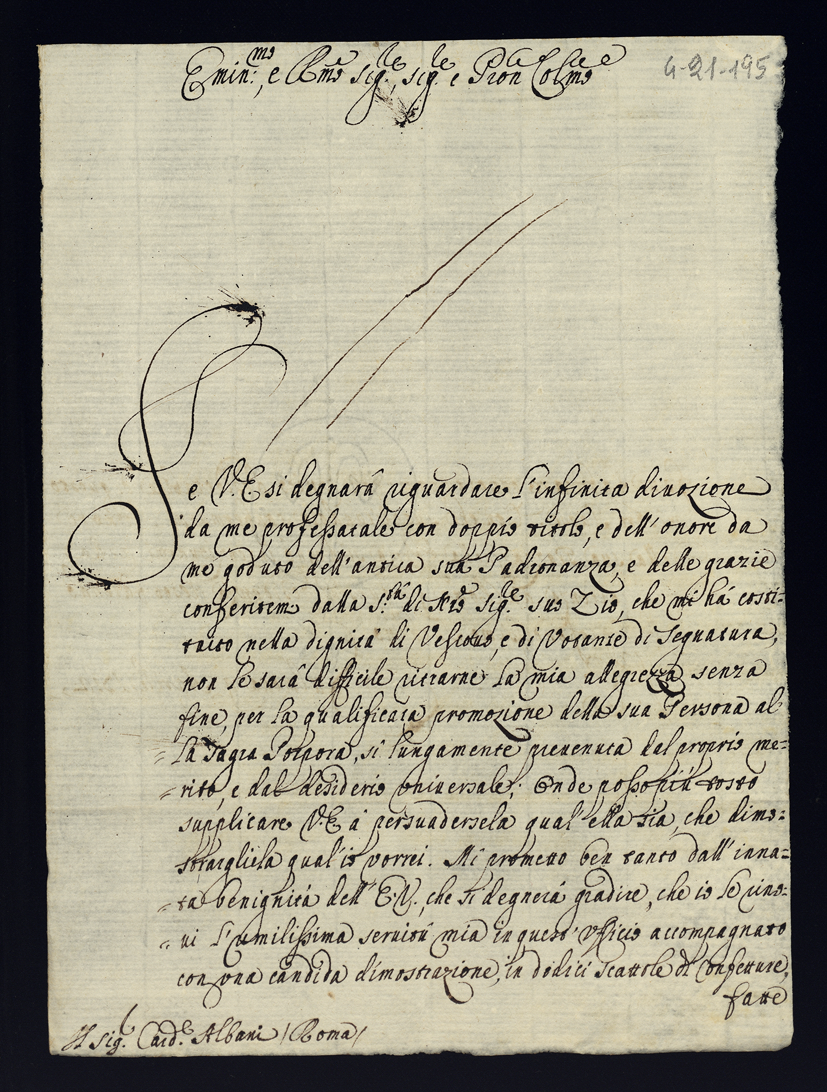 Emin.mo, e Rmo sig.re, sig.re e Pron Colmo
4-21-195
Se V.E. si degnarà riguardare l'infinita divozione
da me professatale con doppio titolo, e dell'onore da
me goduto dell'antica sua Padronanza, e delle grazie
conferitemi dalla S.tà di Nro sig.re suo Zio, che mi hà costi=
tuito nella dignità di Vescovo, e di Votante di Segnatura,
non le sarà difficile ritrarne la mia allegrezza senza
fine, per la qualificata promozione della sua Persona al
=la Sagra Porpora, sì lungamente prevenuta dal proprio me=
=rito, e dal desiderio universale; Onde posso più tosto
supplicare V.E. à persuadersela qual'ella sia, che dimo=
strargliela qual'io vorrei. Mi prometto ben tanto dall'inna=
=ta benignità dell'E.V. che si degnerà gradire, che io le rino=
=vi l'umilissima servitù mia in quest'ufficio accompagnato
con una candida dimostrazione, in dodici scattole di Confetture,
fatte
Al sig.r Card.e Albani /Roma/